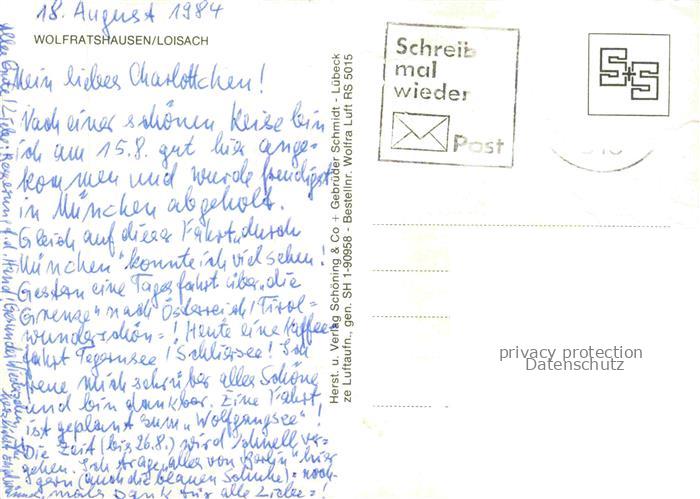 18. August 1984
WOLFRATSHAUSEN/LOISACH
Mein liebes Charlottchen!
Nach einer schönen Reise bin
ich am 15.8. gut hier ange-
kommen und wurde freudigst
in München abgeholt.
Gleich auf dieser Fahrt „durch
München" konnte ich viel sehen!
Gestern eine Tagesfahrt über die
Grenze nach Österreich/Tirol =
wunderschön =! Heute eine Kaffee
fahrt Tegernsee! Schliersee! Ich
freue mich sehr über alles Schöne
und bin dankbar. Eine Fahrt
ist geplant zum „Wolfgangsee"!
Die Zeit (bis 26.8.) wird schnell ver-
gehen. Ich trage „alles von Berlin" hier
gern (auch die blauen Schuhe) = noch-
mals Dank für alle Liebe =!
Alles Gute! Liebe
Gesundes Wiedersehen
herzlichst
Schreib
mal
wieder
Post
S+S
Herst. u. Verlag Schöning & Co + Gebrüder Schmidt - Lübeck
ze Luftaufn., gen. SH 1-90958 - Bestellnr. Wolfra Luft RS 5015
privacy protection
Datenschutz